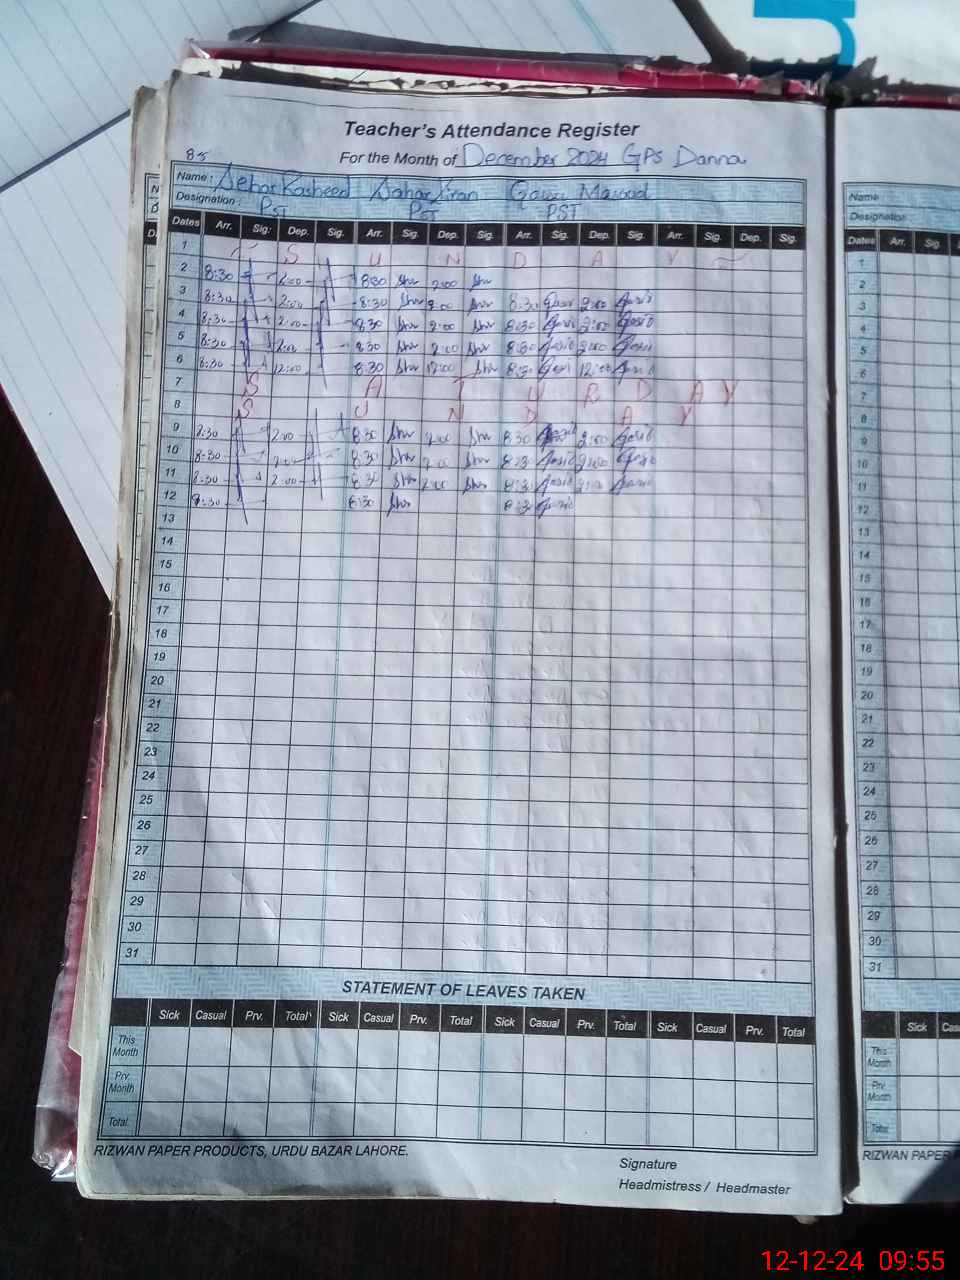 Teacher's Attendance Register
85 For the Month of December 2024 GPS Danna
Name: Sehar Rasheed Sahar Kiran
Designation: PST PST PST
Dates Arr. Sig. Dep. Sig. Arr. Sig. Dep. Sig. Arr. Sig. Dep. Sig. Arr. Sig. Dep. Sig.
1 S U N D A Y
2 8:30 2:00 8:30 2:00
3 8:30 2:00 8:30 2:00 8:30 2:00
4 8:30 2:00 8:30 2:00 8:30 2:00
5 8:30 2:00 8:30 2:00 8:30 2:00
6 8:30 12:00 8:30 12:00 8:30 12:00
7 S A T U R D A Y
8 S U N D A Y
9 8:30 2:00 8:30 2:00 8:30 2:00
10 8:30 2:00 8:30 2:00 8:30 2:00
11 8:30 2:00 8:30 2:00 8:30 2:00
12 8:30 8:30 8:30
13
14
15
16
17
18
19
20
21
22
23
24
25
26
27
28
29
30
31
STATEMENT OF LEAVES TAKEN
Sick Casual Prv. Total Sick Casual Prv. Total Sick Casual Prv. Total Sick Casual Prv. Total
This Month
Prv. Month
Total
RIZWAN PAPER PRODUCTS, URDU BAZAR LAHORE.
Signature
Headmistress / Headmaster
Name
Designation
Dates Arr. Sig. Dep.
1
2
3
4
5
6
7
8
9
10
11
12
13
14
15
16
17
18
19
20
21
22
23
24
25
26
27
28
29
30
31
Sick
This Month
Prv. Month
Total
RIZWAN PAPER
12-12-24 09:55